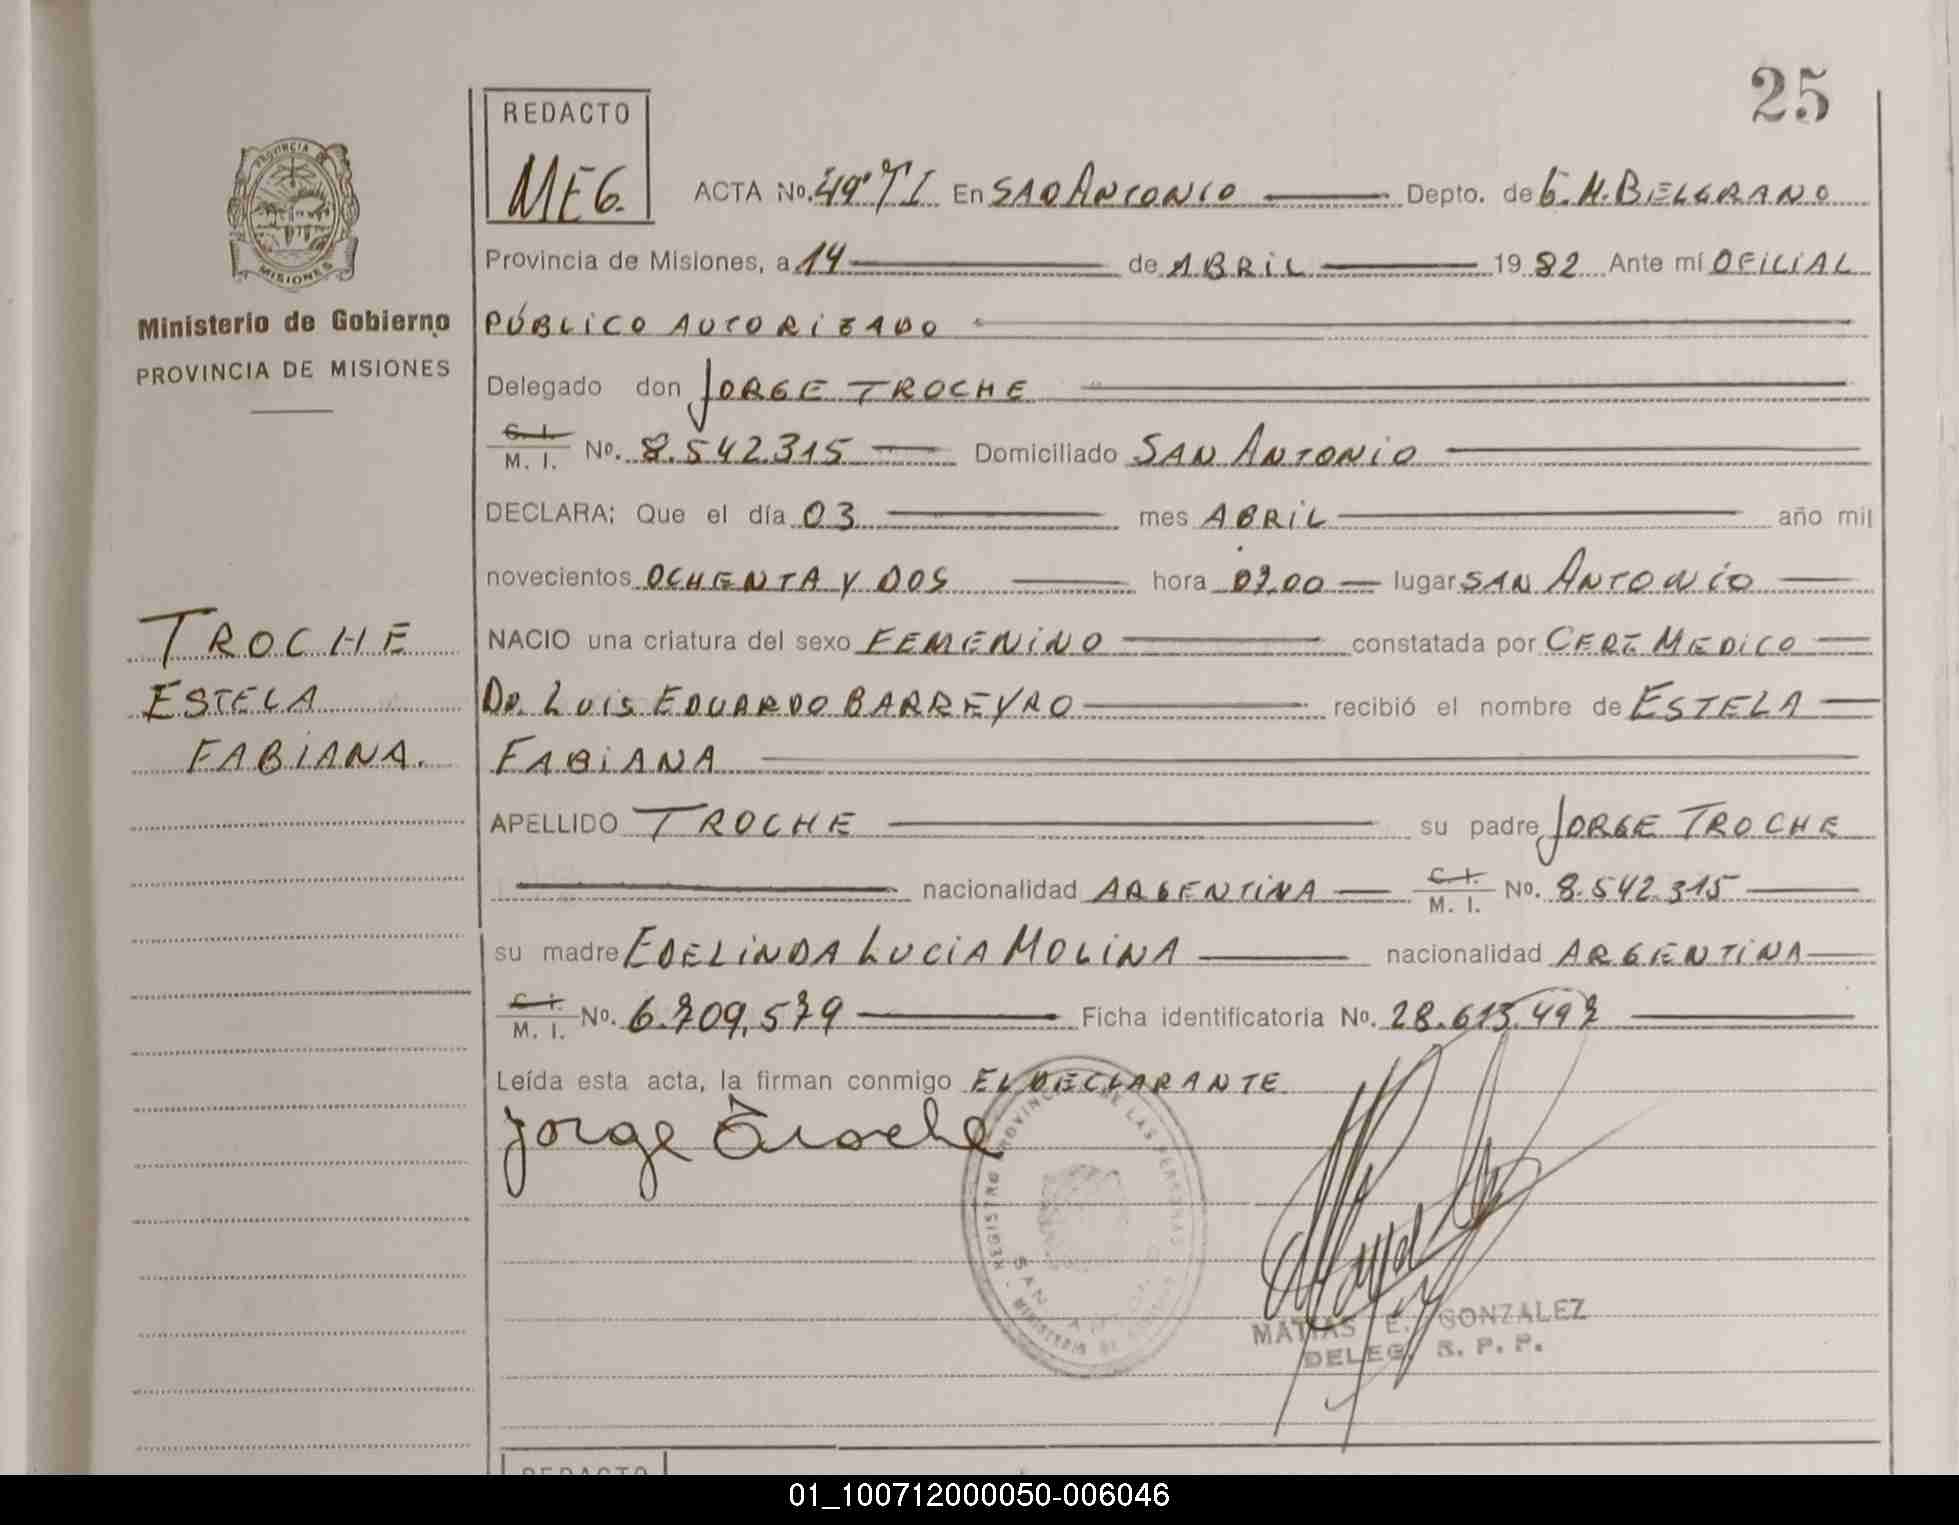 25
REDACTO
MEG.
PROVINCIA DE
MISIONES
Ministerio de Gobierno
PROVINCIA DE MISIONES
TROCHE
ESTELA
FABIANA.
ACTA No. 49º T I En SAO ANTONIO Depto. de G. M. BELGRANO
Provincia de Misiones, a 14 de ABRIL 1982 Ante mí OFICIAL
PÚBLICO AUTORIZADO
Delegado don JORGE TROCHE
C. I. M. I. No. 8.542.315 Domiciliado SAN ANTONIO
DECLARA; Que el día 03 mes ABRIL año mil
novecientos OCHENTA Y DOS hora 07,00 lugar SAN ANTONIO
NACIO una criatura del sexo FEMENINO constatada por CERT MEDICO
DR. LUIS EDUARDO BARREYRO recibió el nombre de ESTELA
FABIANA
APELLIDO TROCHE su padre JORGE TROCHE
nacionalidad ARGENTINA C. I. M. I. No. 8.542.315
su madre EDELINDA LUCIA MOLINA nacionalidad ARGENTINA
C. I. M. I. No. 6.709,579 Ficha identificatoria No. 28.613.497
Leída esta acta, la firman conmigo EL DECLARANTE
Jorge Troche
REGISTRO PROVINCIAL DE LAS PERSONAS
SAN ANTONIO
MINISTERIO DE GOBIERNO
MATIAS E. GONZALEZ
DELEG. R. P. P.
REDACTO
01_100712000050-006046